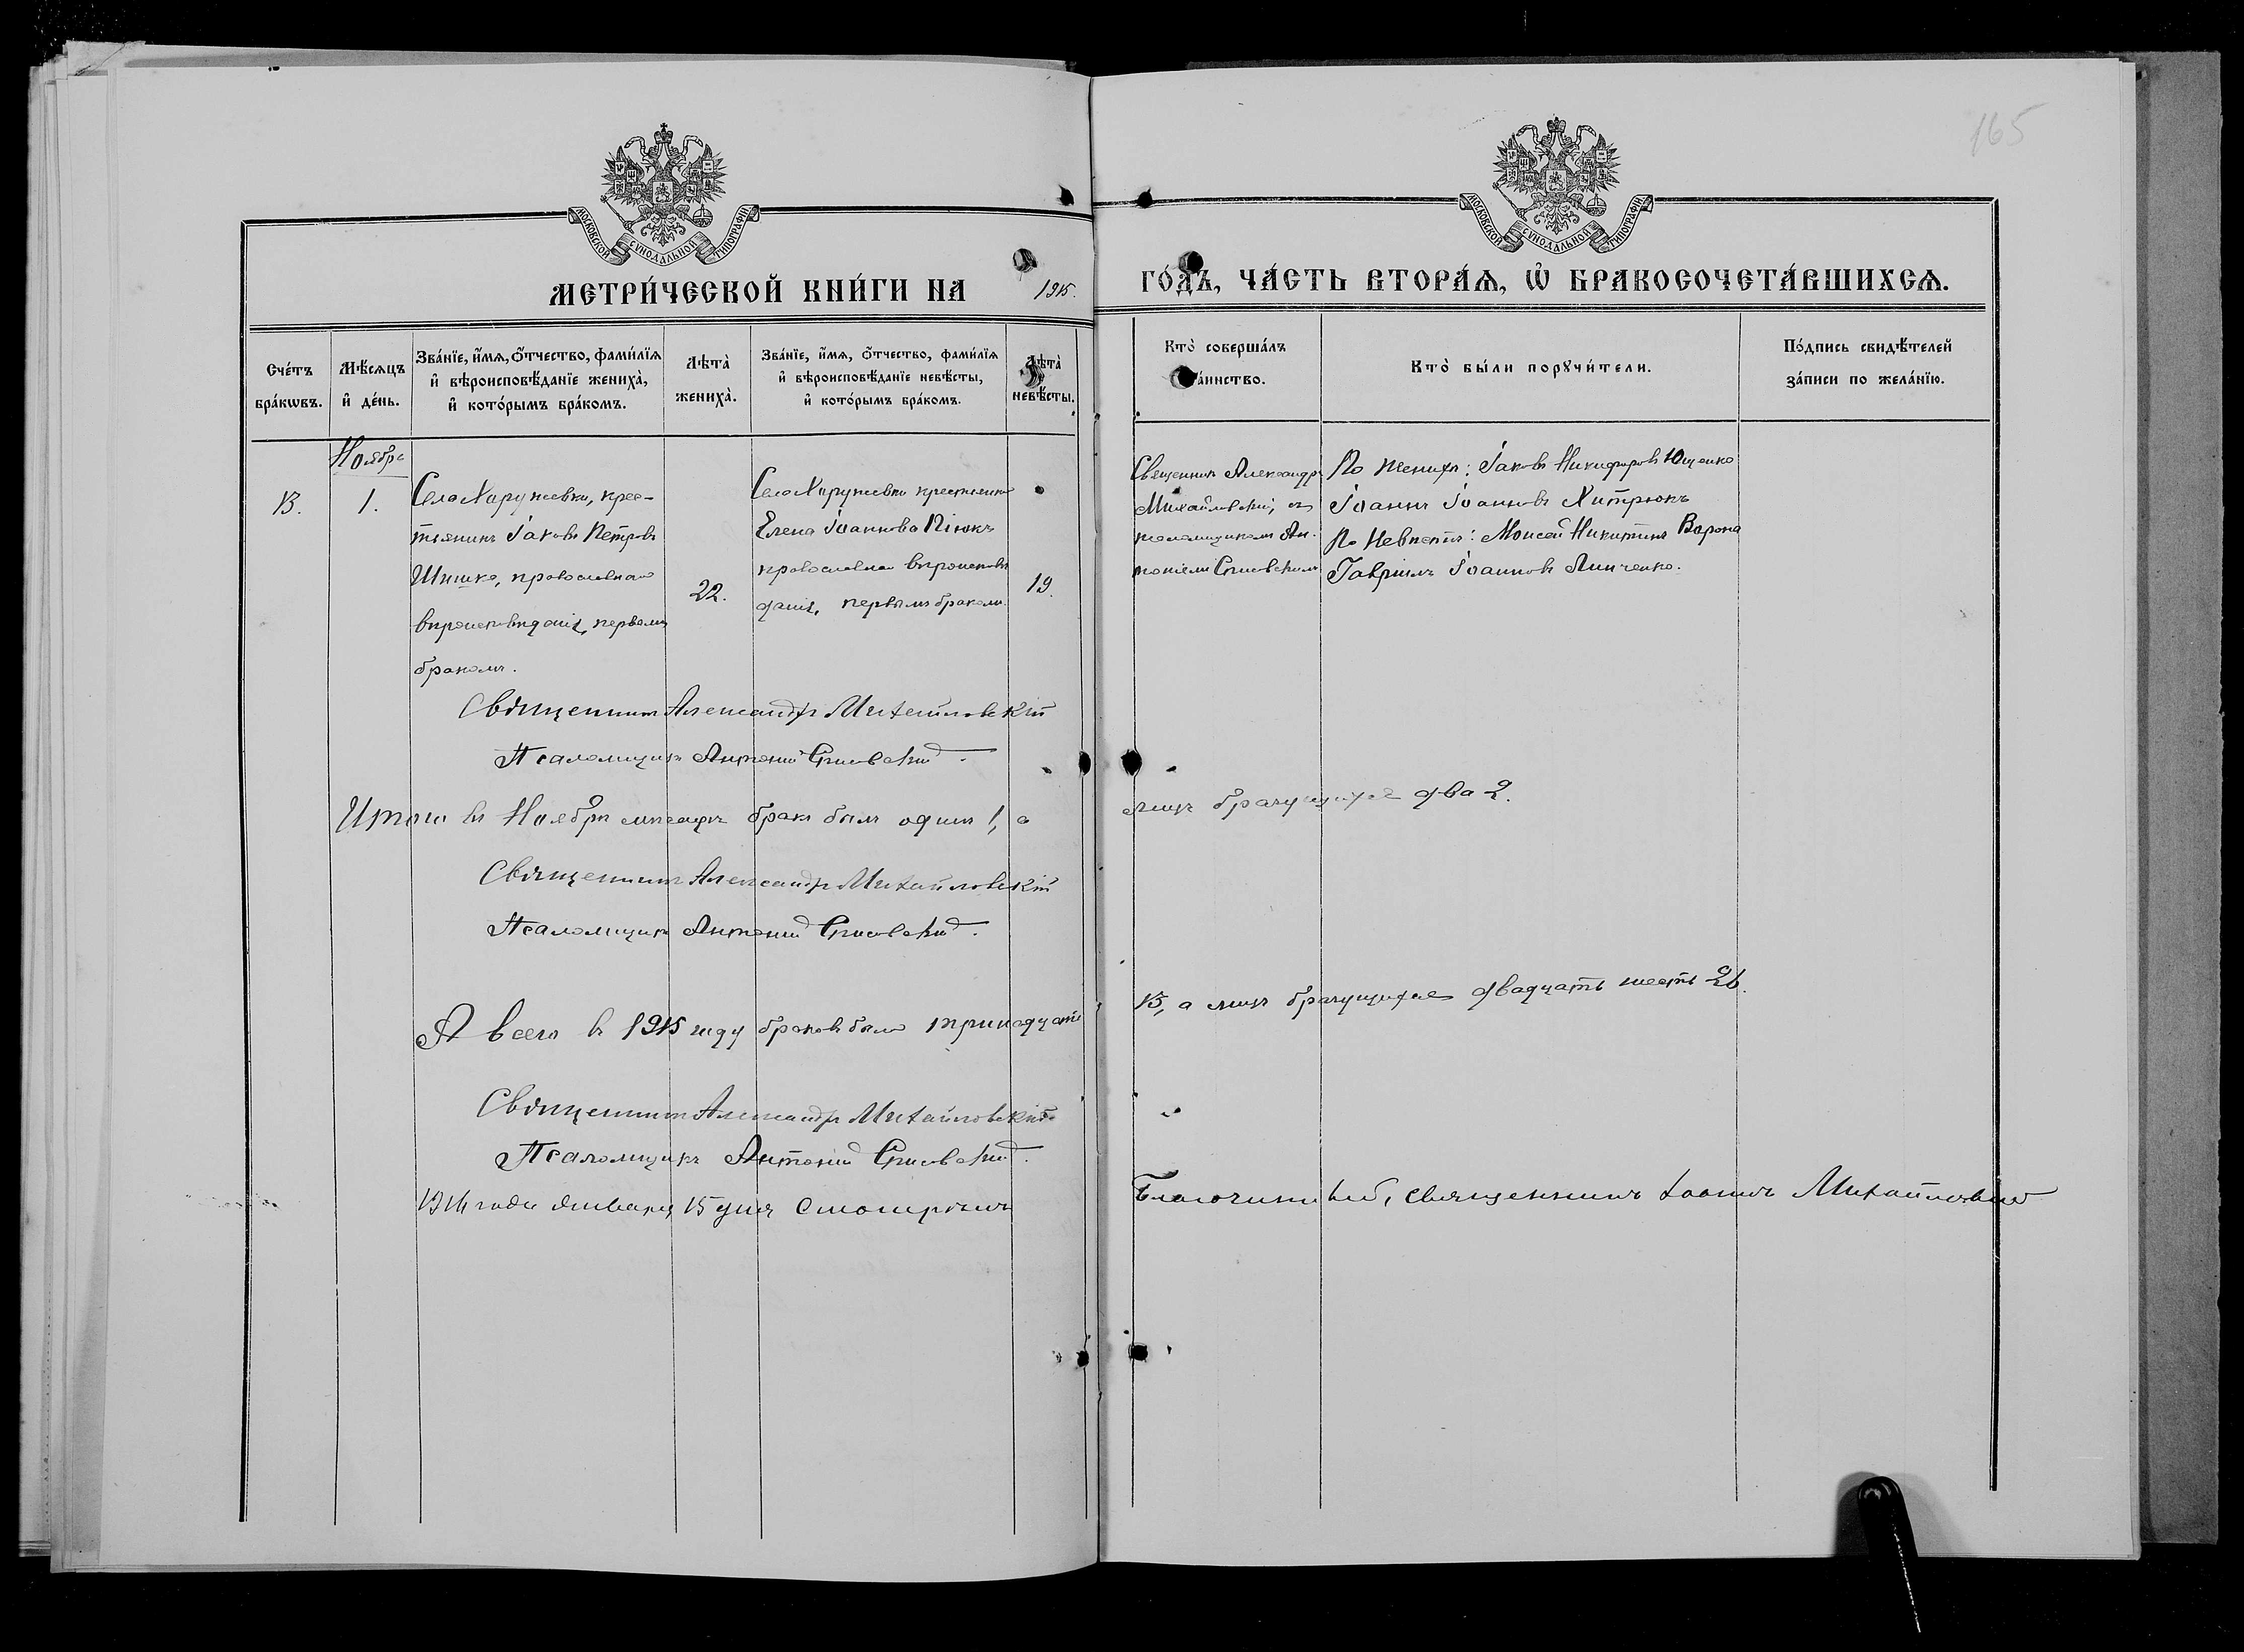 165
МОСКОВСКОЙ СѴНОДАЛЬНОЙ ТИПОГРАФІИ
МОСКОВСКОЙ СѴНОДАЛЬНОЙ ТИПОГРАФІИ
МЕТРИ́ЧЕСКОЙ КНИ́ГИ НА 1915. ГО́ДЪ, ЧА́СТЬ ВТОРА́Ѧ, Ѡ҆ БРАКОСОЧЕТА́ВШИХСѦ.
Сче́тъ бра́кѡвъ.
Мѣ́сѧцъ и҆ де́нь.
Зва́нїе, и҆́мѧ, ѻ҆́тчество, фами́лїѧ
и҆ вѣроисповѣ́данїе жениха̀,
и҆ кото́рымъ бра́комъ.
Лѣта̀ жениха̀.
Зва́нїе, и҆́мѧ, ѻ҆́тчество, фами́лїѧ
и҆ вѣроисповѣ́данїе невѣ́сты,
и҆ кото́рымъ бра́комъ.
Лѣта̀ невѣ́сты.
Кто̀ соверша́лъ
та́инство.
Кто̀ бы́ли порꙋчи́тели.
По́дпись свидѣ́телей
за́писи по жела́нїю.
Ноябрь
13.
1.
Села Харужевки, крес-
тьянинъ Іаковъ Петровъ
Шишко, православнаго
вѣроисповѣданія, первымъ
бракомъ.
22.
Села Харужевки крестьянка
Елена Іоаннова Піюкъ
православнаго вѣроисповѣ
данія, первымъ бракомъ.
19.
Священникъ Александръ
Михайловскій, съ
псаломщикомъ Ан-
тоніемъ
По женихѣ: Іаковъ Никифоровъ Ющенко
Іоаннъ Іоанновъ Хитрюкъ
По невѣстѣ: Моисей Никитинъ Ворона
Гавріилъ Іоанновъ Линченко.
Священникъ Александръ Михайловскій
Псаломщикъ Антоній
Итого въ Ноябрѣ мѣсяцѣ бракъ былъ одинъ 1, а лицъ брачущихся два 2.
Священникъ Александръ Михайловскій
Псаломщикъ Антоній
А всего въ 1915 году браковъ было тринадцать 13, а лицъ брачущихся двадцать шесть 26.
Священникъ Александръ Михайловскій
Псаломщикъ Антоній
1916 года Января 15 дня Смотрѣлъ Благочинный, священникъ Іоаннъ Михайловскій